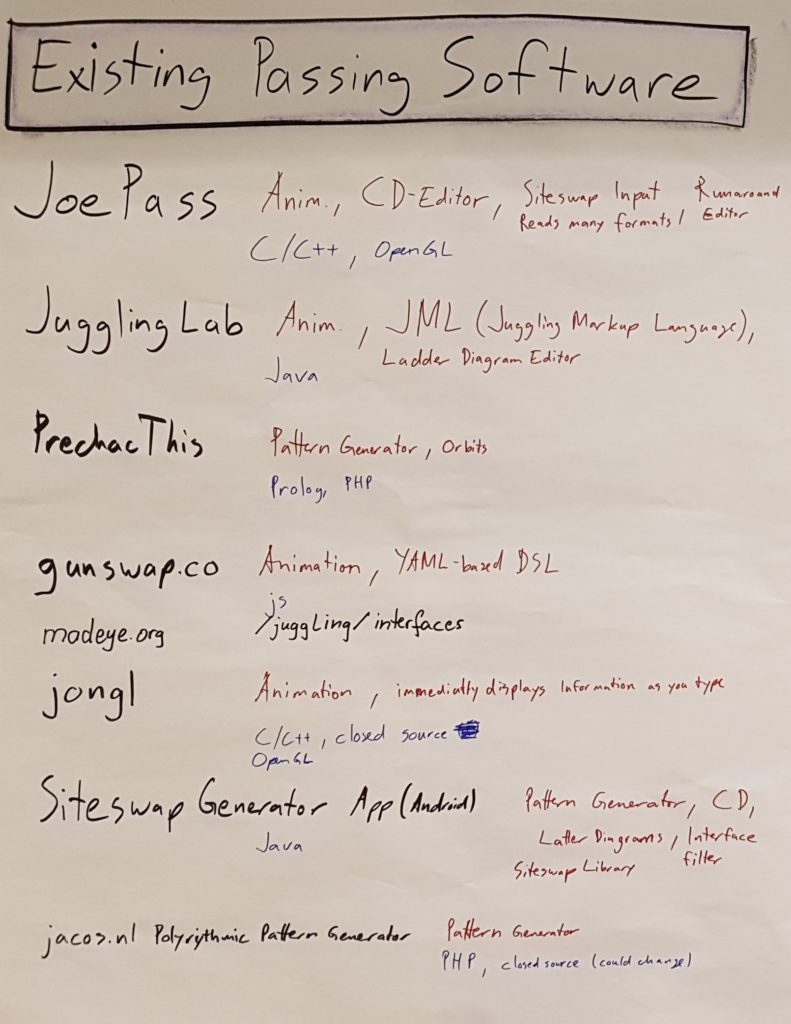 Existing Passing Software
JoePass Anim., CD-Editor, Siteswap Input Runaround
Reads many formats / Editor
C/C++, OpenGL
Juggling Lab Anim., JML (Juggling Markup Language),
Ladder Diagram Editor
Java
PrechacThis Pattern Generator, Orbits
Prolog, PHP
gunswap.co Animation, YAML-based DSL
js
madeye.org /juggling/interfaces
jongl Animation, immediatly displays Information as you type
C/C++, closed source
OpenGL
Siteswap Generator App (Android) Pattern Generator, CD,
Java Latter Diagrams, Interface
Siteswap Library filter
jacos.nl Polyrythmic Pattern Generator Pattern Generator
PHP, closed source (could change)